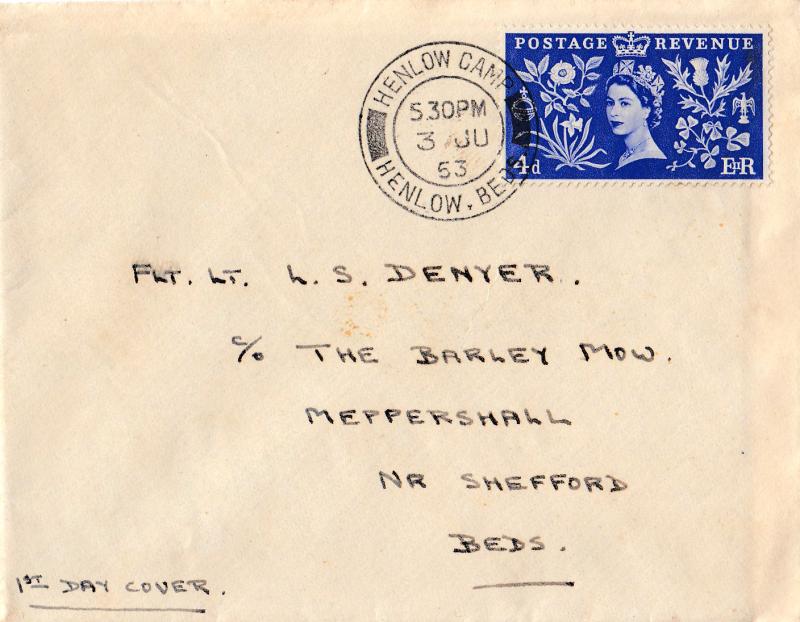 POSTAGE REVENUE
4d
E II R
HENLOW CAMP
5.30PM
3 JU
53
HENLOW, BEDS.
FLT. LT. L. S. DENYER.
c/o THE BARLEY MOW.
MEPPERSHALL
NR SHEFFORD
BEDS.
1ST DAY COVER.